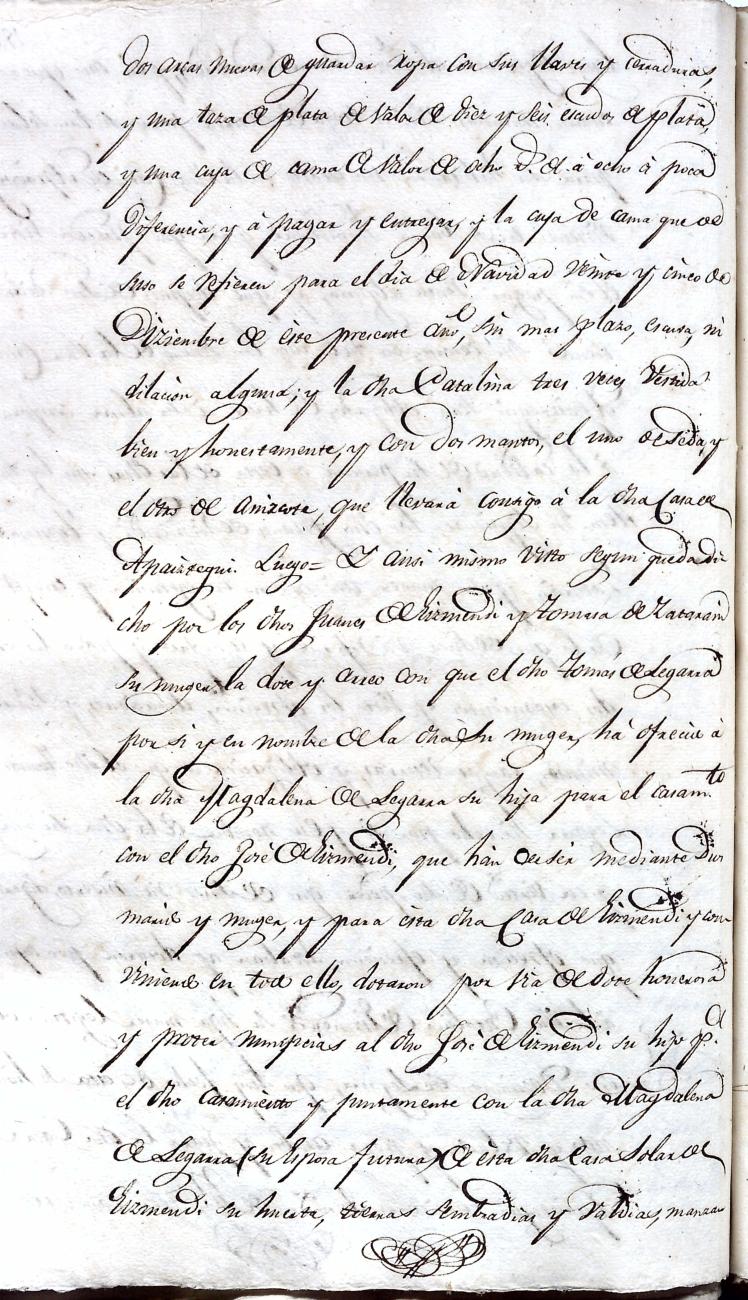 dos arcas nuevas de guardar ropa con sus llaves y cerraduras,
y una taza de plata de valor de diez y seis escudos de plata,
y una cuja de cama de valor de ocho R.s de à ocho à poca
diferencia, y à pagar y entregar, y la cuja de cama que de
suso se refieren para el dia de Navidad veinte y cinco de
Diziembre de èste presente año, sin mas plazo, escusa, ni
dilacion alguna; y la dha Catalina tres veces vestida
bien y honestamente, y con dos mantos, el uno de seda, y
el otro de anizcote, que llevarà consigo à la dha Casa de
Apaiztegui. Luego= Y ansi mismo visto segun queda di-
cho por los dhos Juanes de Eizmendi y Tomasa de Zatarain
su muger la dote y arreo con que el dho Tomás de Legarra
por si y en nombre de la dha su muger, hà ofrecido à
la dha Magdalena de Legarra su hija para el casam.to
con el dho José de Eizmendi, que hàn de sèr mediante Dios
marido y muger, y para èsta dha Casa de Eizmendi y con-
viniendo en todo ello, dotaron por via de dote honerosa
y propter numpcias al dho José de Eizmendi su hijo p.a
el dho casamiento y juntamente con la dha Magdalena
de Legarra (su esposa futura) de èsta dha Casa Solar de
Eizmendi su huerta, tierras sembradias y valdias, manza-